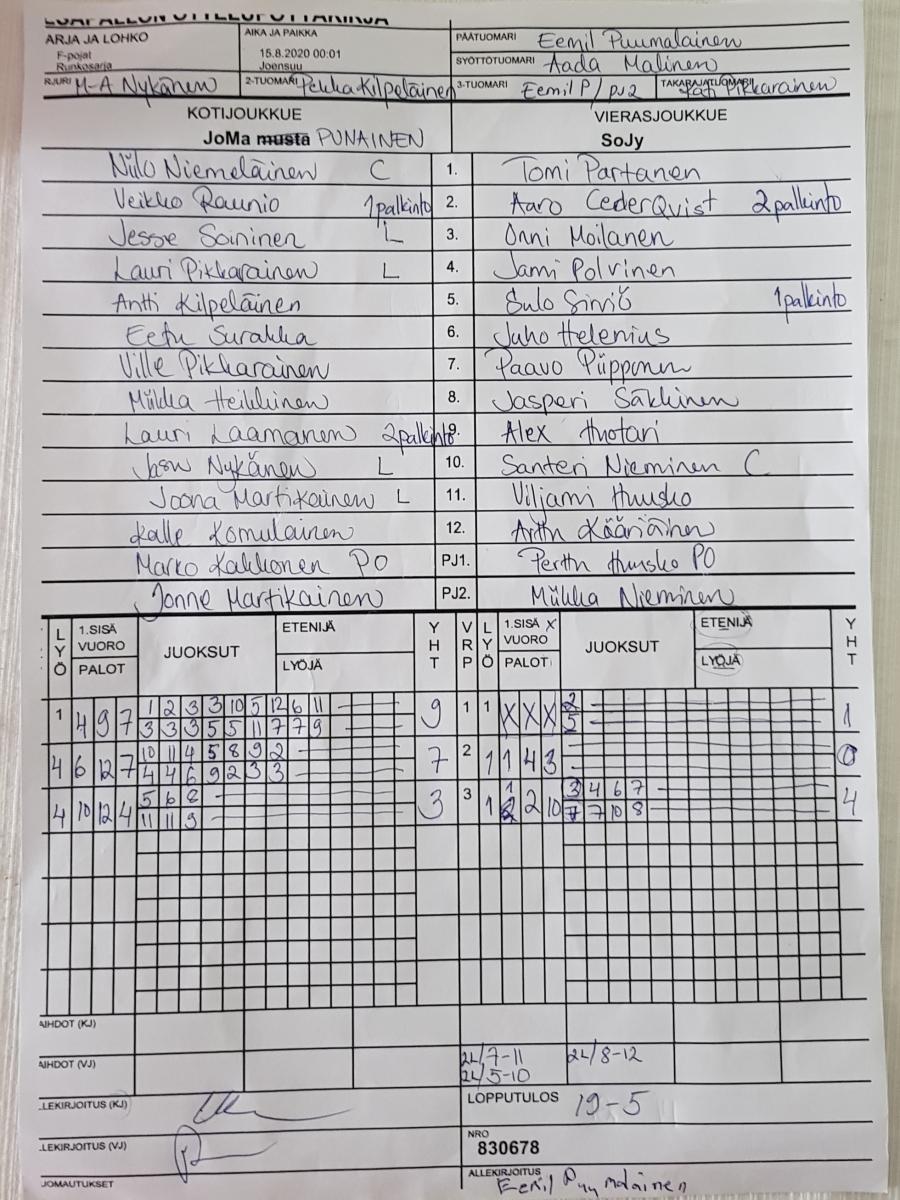 PESÄPALLON OTTELUPÖYTÄKIRJA
ARJA JA LOHKO
F-pojat
Runkosarja
AIKA JA PAIKKA
15.8.2020 00:01
Joensuu
PÄÄTUOMARI Eemil Puumalainen
SYÖTTÖTUOMARI Aada Malinen
RJURI M-A Nykänen 2-TUOMARI Pekka Kilpeläinen 3-TUOMARI Eemil P / PJ2 TAKARAJATUOMARI Pikkarainen
KOTIJOUKKUE VIERASJOUKKUE
JoMa musta PUNAINEN SoJy
Niilo Niemeläinen C 1. Tomi Partanen
Veikko Raunio 1 palkinto 2. Aaro CederQvist 2 palkinto
Jesse Soininen L 3. Onni Moilanen
Lauri Pikkarainen L 4. Jami Polvinen
Antti Kilpeläinen 5. Sulo Sirviö 1 palkinto
Eetu Surakka 6. Juho Helenius
Ville Pikkarainen 7. Paavo Piipponen
Miikka Heikkinen 8. Jasperi Säkkinen
Lauri Laamanen 2 palkinto 9. Alex Huotari
Nykänen L 10. Santeri Nieminen C
Joona Martikainen L 11. Viljami Huusko
Kalle Komulainen 12. Kääriäinen
Marko Kakkonen PO PJ1. Huusko PO
Jonne Martikainen PJ2. Miikka Nieminen
LYÖ 1.SISÄ VUORO PALOT JUOKSUT ETENIJÄ LYÖJÄ YHT VRP LYÖ 1.SISÄ X VUORO PALOT JUOKSUT ETENIJÄ LYÖJÄ YHT
1 4 9 7 1 2 3 3 10 5 12 6 11 9 1 1 X X X 2 1
3 3 3 5 5 11 7 7 9 5
4 6 12 7 10 11 4 5 8 9 2 7 2 1 1 4 3 0
4 4 6 9 2 3 3
4 10 12 4 5 6 8 3 3 1 1 2 10 3 4 6 7 4
11 11 9 7 7 10 8
AIHDOT (KJ)
AIHDOT (VJ) 2L/7-11 2L/8-12
2L/5-10
LEKIRJOITUS (KJ) LOPPUTULOS 19-5
LEKIRJOITUS (VJ) NRO
830678
JOMAUTUKSET ALLEKIRJOITUS Eemil Puumalainen